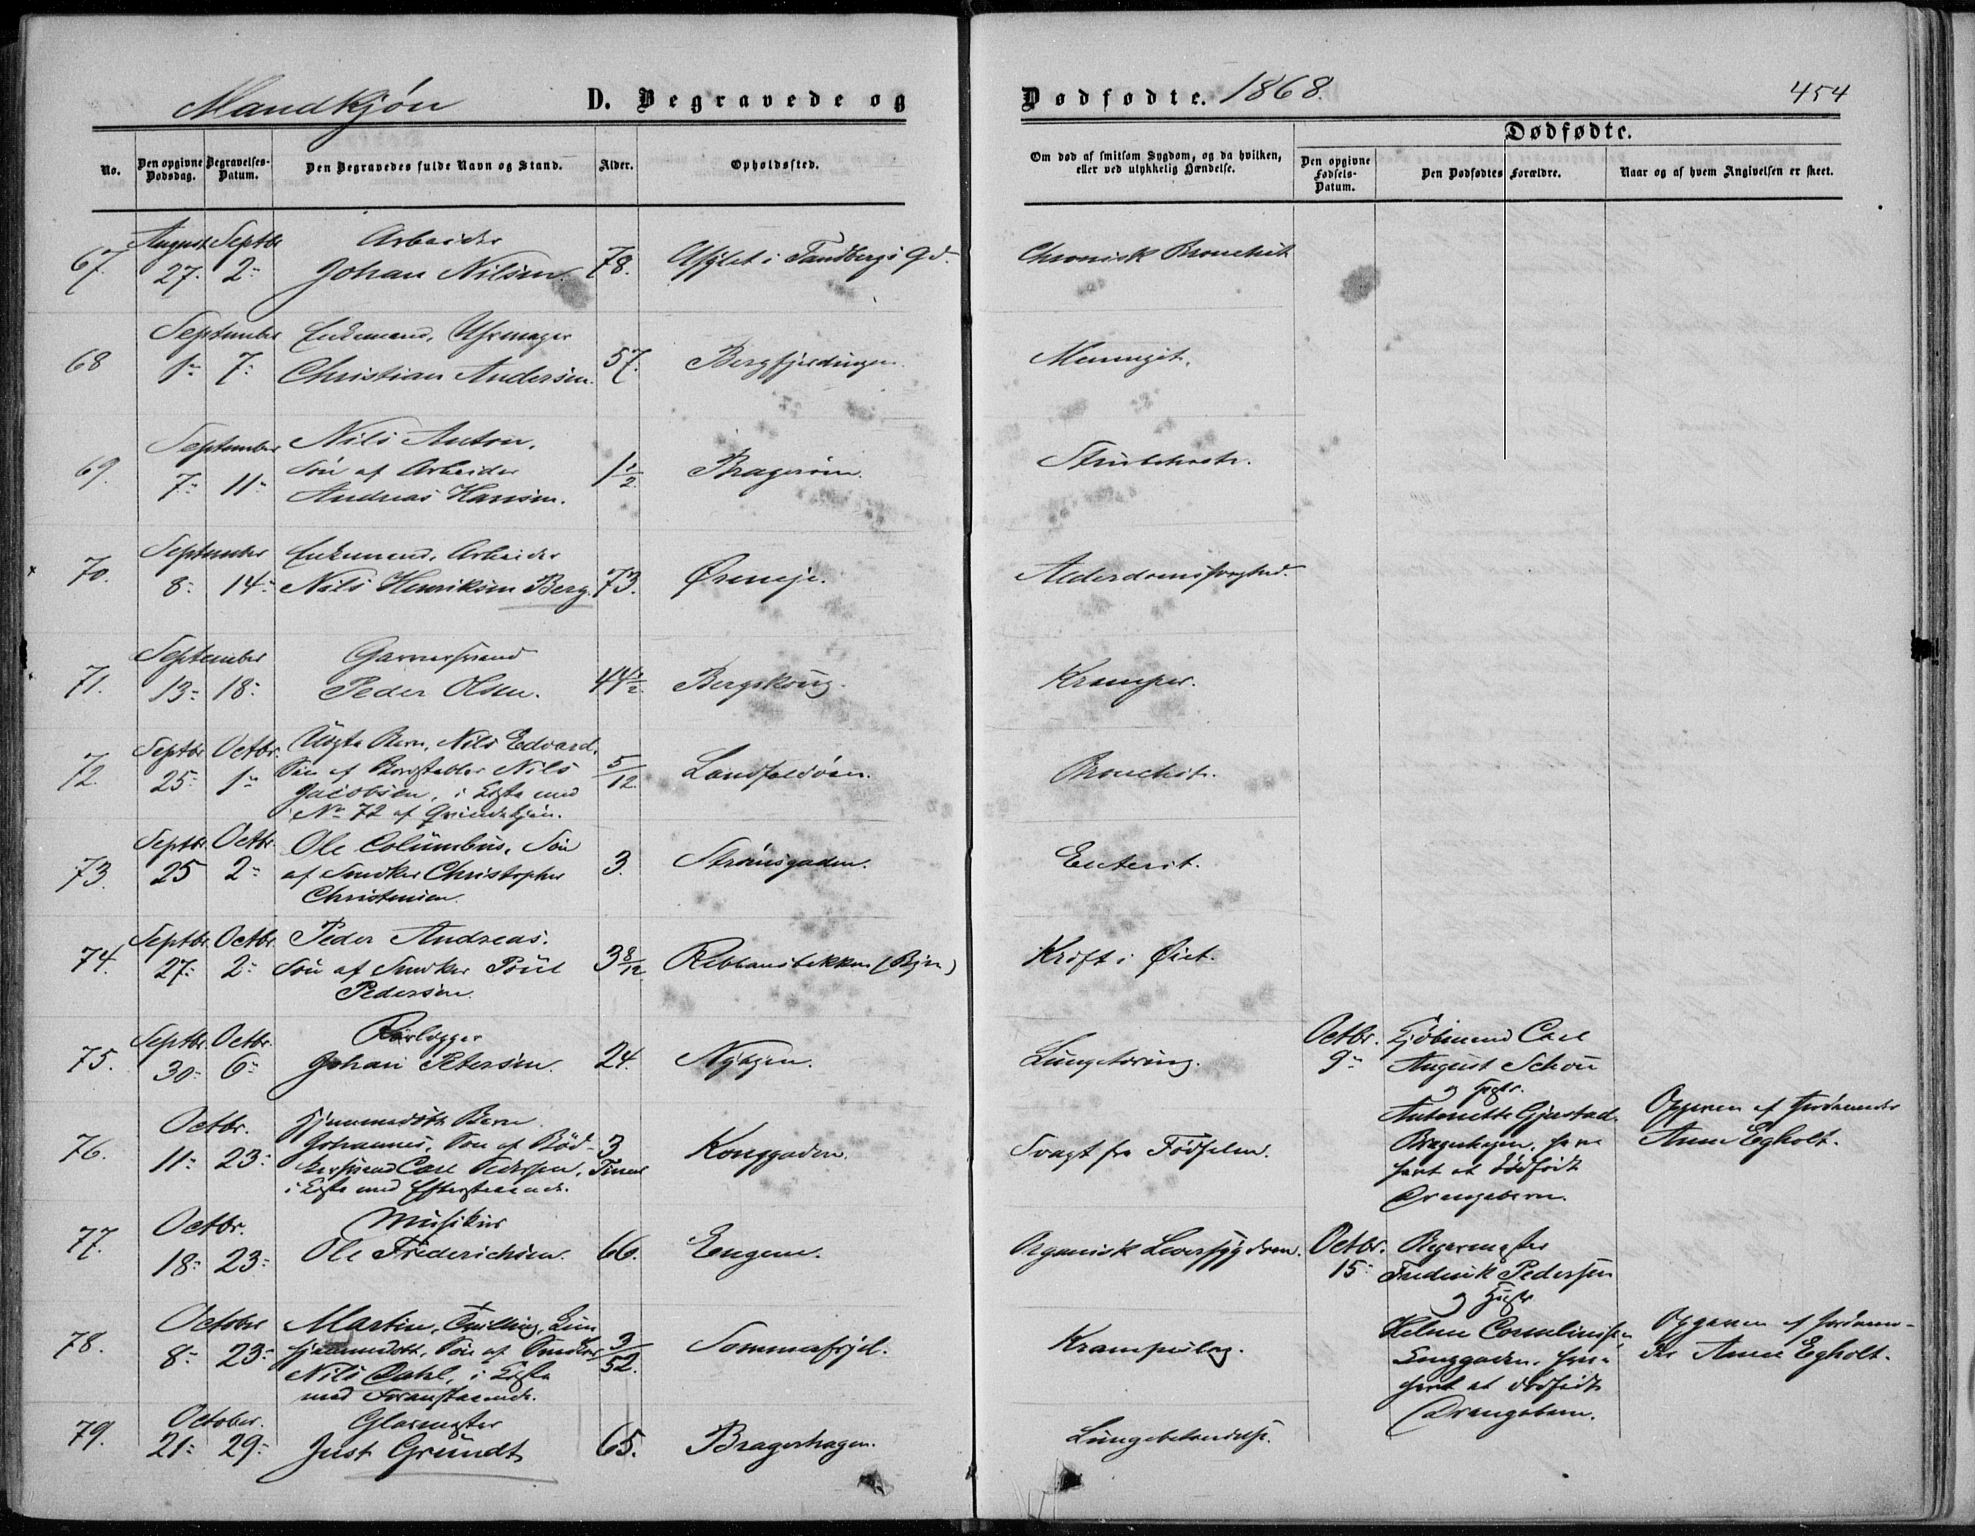 Mandkjøn D. Begravede og Dødfødte. 1868. 454
Dødfødte.
No. Den opgivne Dødsdag. Begravelses-Datum. Den Begravedes fulde Navn og Stand. Alder. Opholdssted. Om død af smitsom Sygdom, og da hvilken, eller ved ulykkelig Hændelse. Den opgivne Fødsels-Datum. Den Dødfødtes Forældre. Naar og af hvem Angivelsen er skeet.
August Septbr Arbeider
67. 27. 2- Johan Nilsen. 78. Asylet i Tandbergs Gd. Chronisk Bronchit
September Enkemand,
68 1- 7- Christian Andersen. 57. Bergfjerdingen. Meningit.
September Nils Anton,
69. 7- 11- Søn af Arbeider 1 1/2 Bragerøen. Strubehoste.
Andreas Hansen.
September Enkemand, Arbeider
70. 8- 14- Nils Henriksen Berg. 73. Øreneje. Alderdomssvaghed.
September Garversvend
71. 13- 18- Peder Olsen. 44 1/2 Bergskoug. Kramper.
Septbr. Octbr. Uægte Barn, Nils Edvard,
72. 25- 1- Søn af Nils 5/12 Landfaldøen. Bronchit.
Jacobsen, i Ægte med
No 72 af Qvindekjøn.
Septbr. Octbr. Ole Columbus, Søn
73. 25 2- af Snedker Christopher 3. Strømsgaden. Enterit.
Christensen.
Septbr. Octbr. Peder Andreas.
74. 27- 2- Søn af Snedker Poul 3 8/12 Rebbansbakken (Byen) Kræft i Øiet.
Pedersen.
Septbr. Octbr. Rørlægger
75. 30- 6- Johan Petersen. 24. Nybyen. Lungetæring.
Octbr. Kjøbmand Carl
9- August Schou
og Hustr.
Antonette Gjestad. Opgiven af Jordemoder
Bragerhagen, Anne Egholt.
født et dødfødt
Drengebarn.
Octbr. Hjemmedøbt Barn
76. 11- 23- Johannes, Søn af Bød- 3 Konggaden. Svagt fra Fødselen.
kersvend Carl Pedersen, Timer
i Ægte med Efterstaaende.
Octbr. Musikus
77. 18- 23- Ole Frederichsen. 66. Engene. Organisk Leversygdom.
Octbr.
15- Frederik Pedersen
og Hustr
Helene Corneliussen Opgiven af Jordemo-
Konggaden, der Anne Egholt.
født et dødfødt
Drengebarn.
October Martin, Tvilling,
78. 8- 23- hjemmedøbt, Søn af Snedker 3/52. Sommerfryd. Krampeslag.
Nils Dahl, i Ægte
med Foranstaaende.
October. Glarmester
79. 21- 29- Just Gründt 65. Bragerhagen. Lungebetændelse.